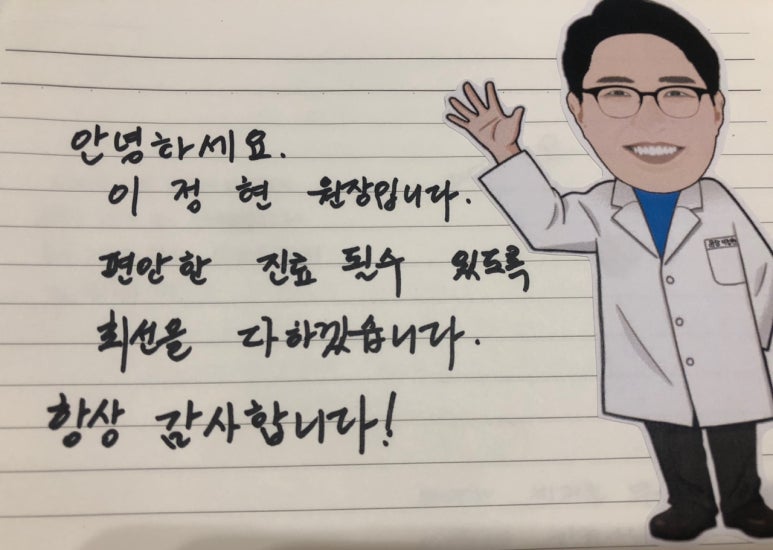 안녕하세요.
이정현 원장입니다.
편안한 진료 될수 있도록
최선을 다하겠습니다.
항상 감사합니다!